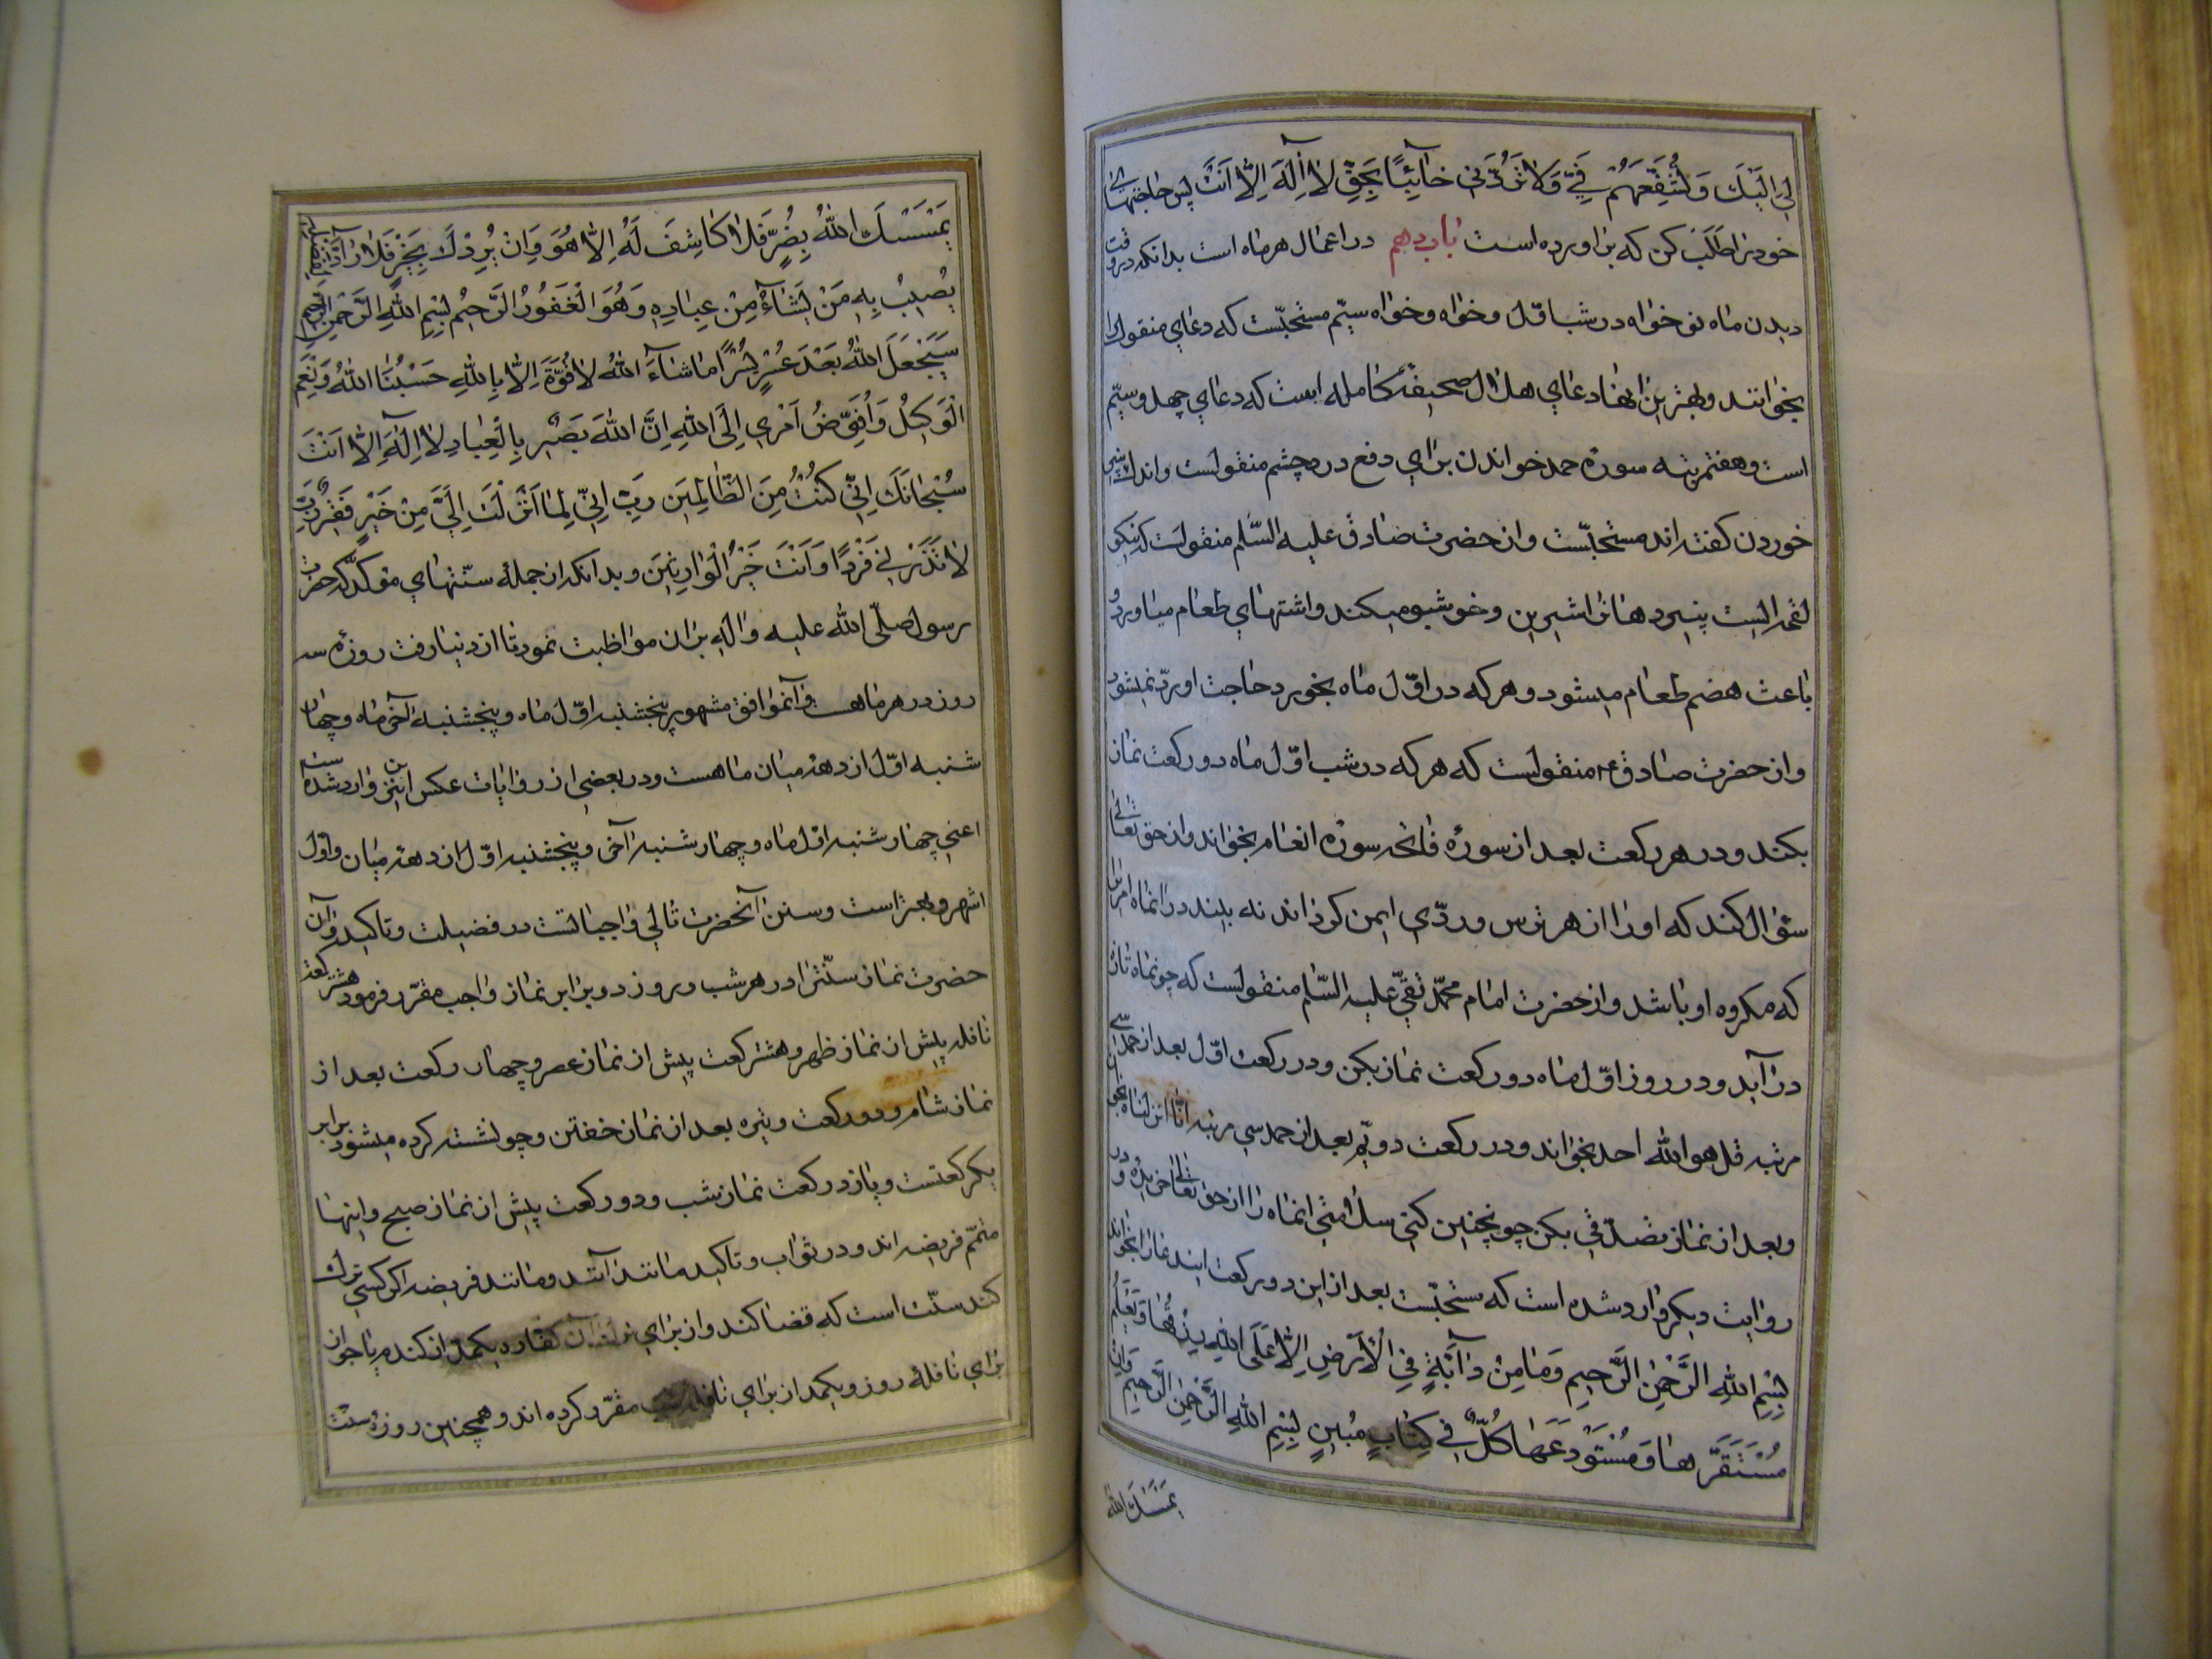 لی الیک و لتشفعهم فیّ وَلا تَرُدَّنی خآئِبًا بِحَقِّ لا اِلٰهَ اِلّا اَنْتَ پس حاجتهای
خود را طلب کن که براورده است باب دهم در اعمال هر ماه است بدانکه در وقت
دیدن ماه نو خواه در شب اوّل وخواه وخواه سیّم مستحبّست که دعای منقول را
بخوانند وبهترین انها دعای هلال صحیفهٔ کامله است که دعای چهل وسیّم
است وهفتمرتبه سورهٔ حمد خواندن برای دفع درد چشم منقولست واندک پنیری
خوردن کفته اند مستحبّست واز حضرت صادق علیه السّلم منقولست که نیکو
لقمه ایست پنیر دهانرا شیرین وخوشبو میکند واشتهای طعام میاورد و
باعث هضم طعام میشود وهر که در اوّل ماه بخورد حاجت او ردّ نمیشود
واز حضرت صادق ع منقولست که هر که در شب اوّل ماه دو رکعت نماز
بکند ودر هر رکعت بعد از سورهٔ فاتحه سورهٔ انعام بخواند واز حق تعالی
سؤال کند که او را از هر ترس ودردی ایمن کرداند نه بیند در انماه امریرا
که مکروه او باشد واز حضرت امام محمّد تقی علیه السّلم منقولست که چو نماه تازه
درآید ودر روز اوّل ماه دو رکعت نماز بکن ودر رکعت اوّل بعد از حمد سی
مرتبه قل هو الله احد بخواند ودر رکعت دویّم بعد از حمد سی مرتبه انّا انزلناه بخوا
وبعد از نماز تصدّقی بکن چو نچنین کنی سلامتی انماه را از حق تعالی خریدهٔ ودر
روایت دیکر وارد شده است که مستحبّست بعد از این دو رکعت ایند عا را بخواند
بِسْمِ اللهِ الرَّحْمٰنِ الرَّحیمِ وَمَا مِنْ دآبَّةٍ فِی الْاَرْضِ اِلّا عَلَی اللهِ رِزْقُهَا وَیَعْلَمُ
مُسْتَقَرَّهَا وَمُسْتَوْدَعَهَا کُلٌّ فی کِتَابٍ مُبینٍ بِسْمِ اللهِ الرَّحْمٰنِ الرَّحیمِ وَاِنْ
یمسسک الله
یَمْسَسْکَ اللهُ بِضُرٍّ فَلا کَاشِفَ لَهُ اِلّا هُوَ وَاِنْ یُرِدْکَ بِخَیْرٍ فَلا رَآدَّ لِفَضْلِهِ
یُصیبُ بِهِ مَنْ یَشَآءُ مِنْ عِبَادِهِ وَهُوَ الْغَفُورُ الرَّحیمُ بِسْمِ اللهِ الرَّحْمٰنِ الرَّحیمِ
سَیَجْعَلُ اللهُ بَعْدَ عُسْرٍ یُسْرًا مَا شَآءَ اللهُ لا قُوَّةَ اِلّا بِاللهِ حَسْبُنَا اللهُ وَنِعْمَ
الْوَکیلُ وَاُفَوِّضُ اَمْری اِلَی اللهِ اِنَّ اللهَ بَصیرٌ بِالْعِبَادِ لا اِلٰهَ اِلّا اَنْتَ
سُبْحَانَکَ اِنّی کُنْتُ مِنَ الظَّالِمینَ رَبِّ اِنّی لِمَا اَنْزَلْتَ اِلَیَّ مِنْ خَیْرٍ فَقیرٌ رَبِّ
لا تَذَرْنی فَرْدًا وَاَنْتَ خَیْرُ الْوَارِثینَ وبدانکه از جملهٔ سنّتهای مؤکّد که حضرت
رسول صلّی الله علیه واٰله بر ان مواظبت نمود تا از دنیا رفت روزهٔ سه
روز در هر ماهی وآنموافق مشهور پنجشنبه اوّل ماه وپنجشنبه آخر ماه وچهار
شنبه اوّل از دهه میان ماهست ودر بعضی از روایات عکس این نیز وارد شده است
اعنی چهار شنبه اوّل ماه وچهار شنبه آخر وپنجشنبه اوّل از دهه میان واوّل
اشهر وبهتر است وسنن آنحضرت تالی واجباتست در فضیلت وتاکید وآن
حضرت نماز سنّترا در هر شب وروز دو برابر نماز واجب مقرّر فرمود هشترکعت
نافله پیش از نماز ظهر وهشترکعت پیش از نماز عصر وچهار رکعت بعد از
نماز شام ودو رکعت وتیره بعد از نماز خفتن وچو نشسته کرده میشود برابر
یکرکعتست ویازده رکعت نماز شب ودو رکعت پیش از نماز صبح واینها
متمّم فریضه اند ودر ثواب وتاکید مانند آنند ومانند فریضه اکر کسی ترک
کند سنّت است که قضا کند واز برای ترک آن کفاره یکمد از کندم یا جو از
برای نافلهٔ روز ویکمد از برای نافله شب مقرّر کرده اند وهمچنین روزهٔ سنّت